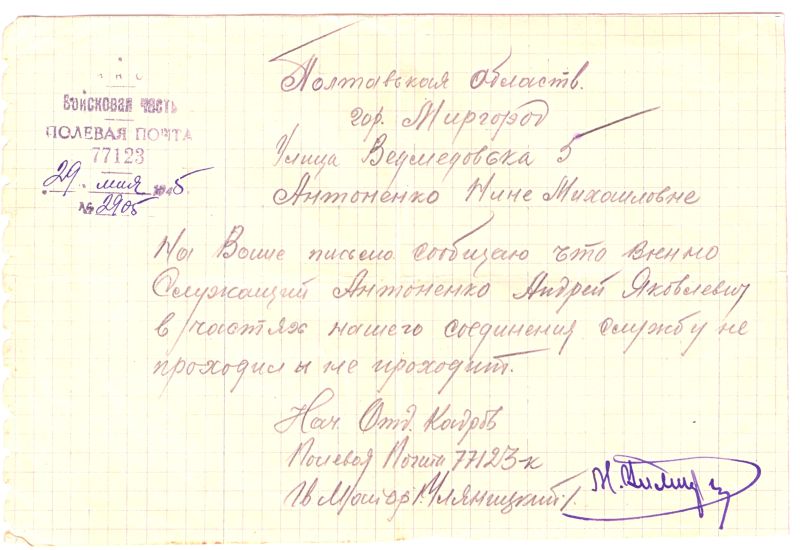 Н К О
Войсковая часть
ПОЛЕВАЯ ПОЧТА
77123
29 мая 1945
№ 2905
Полтавская область.
гор. Миргород
Улица Ведмедовska 5
Антоненко Нине Михайловне
На Ваше письмо сообщаю что военно
Служащий Антоненко Андрей Яковлевич
в частях нашего соединения службу не
проходил и не проходит.
Нач. Отд. Кадров
Полевая Почта 77123-к
Гв Майор